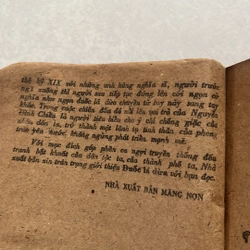 thế kỷ XIX với những anh hùng nghĩa sĩ, người trước
ngã xuống thì người sau tiếp tục đứng lên với ngọn cờ
nghĩa như ngọn đuốc lá dừa chuyền từ tay này sang tay
khác. Trong cuộc chiến đấu đó nổi lên vai trò của Nguyễn
Đình Chiểu là người tiêu biểu cho ý chí chống giặc cả
nhân dân ta, trở thành một lãnh tụ tinh thần của phong
trào yêu nước, không ngừng phát triển mạnh mẽ.
Với mục đích góp phần ca ngợi truyền thống đấu
tranh bất khuất của dân tộc ta, của thành phố ta, Nhà
xuất bản xin trân trọng giới thiệu Đuốc lá dừa với bạn đọc.
NHÀ XUẤT BẢN MĂNG NON